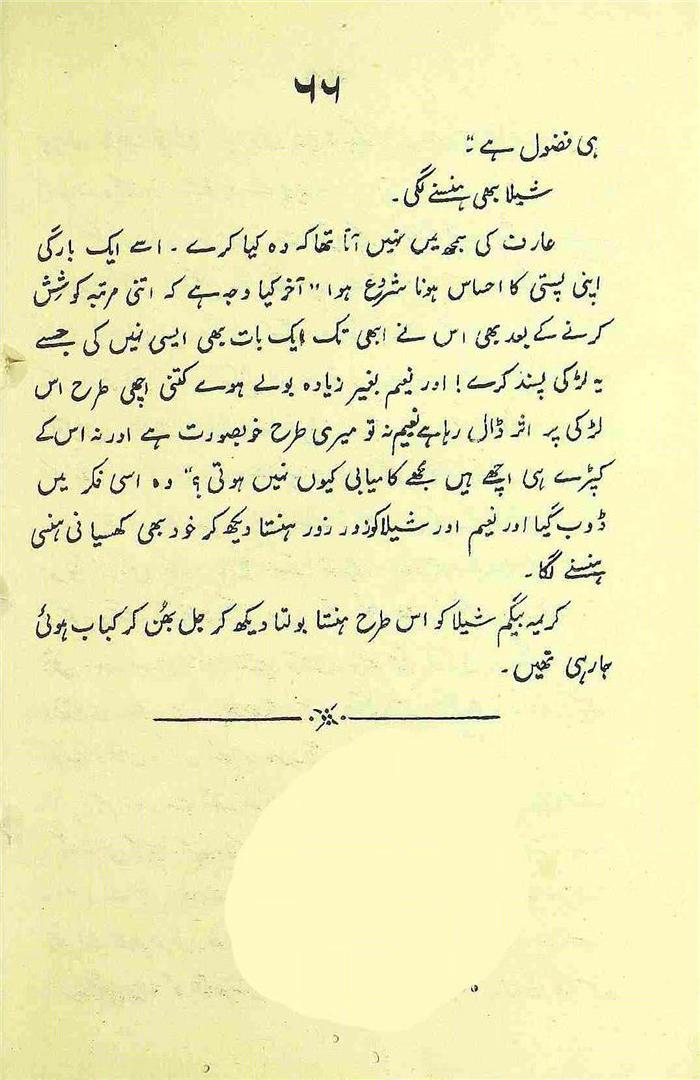 ۶۶
ہی فضول ہے"۔
شیلا بھی ہنسنے لگی۔
عارف کی سمجھ میں نہیں آتا تھا کہ وہ کیا کرے ۔ اسے ایک بارگی
اپنی پستی کا احساس ہونا شروع ہوا "آخر کیا وجہ ہے کہ اتنی مرتبہ کوشِش
کرنے کے بعد بھی اس نے ابھی تک ایک بات بھی ایسی نہیں کی جسے
یہ لڑکی پسند کرے! اور نعیم بغیر زیادہ بولے ہوے کتنی اچھی طرح اس
لڑکی پر اثر ڈال رہا ہے نعیم نہ تو میری طرح خوبصورت ہے اور نہ اس کے
کپڑے ہی اچھے ہیں مجھے کامیابی کیوں نہیں ہوتی؟" وہ اسی فکر میں
ڈوب گیا اور نعیم اور شیلا کو زور زور ہنستا دیکھ کر خود بھی کھسیانی ہنسی
ہنسنے لگا۔
کریمہ بیگم شیلا کو اس طرح ہنستا بولتا دیکھ کر جل بھُن کر کباب ہوئی
جا رہی تھیں۔